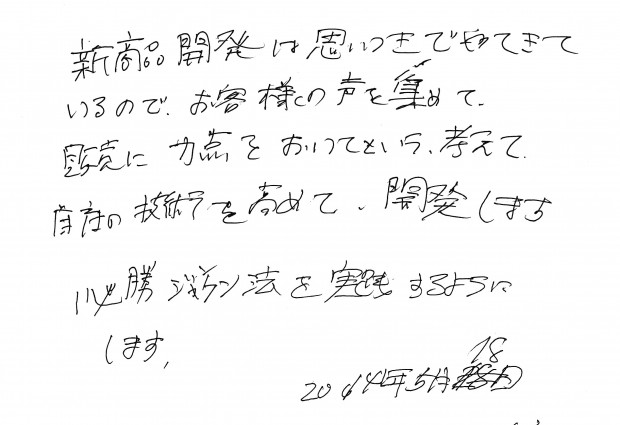 新商品開発は思いつきでやてきて
いるので、お客様の声を集めて、
販売に力点をおいてという、考えて、
の技術を高めて、開発します
必勝ジャケン法を実践するように
します、
2014年5月18